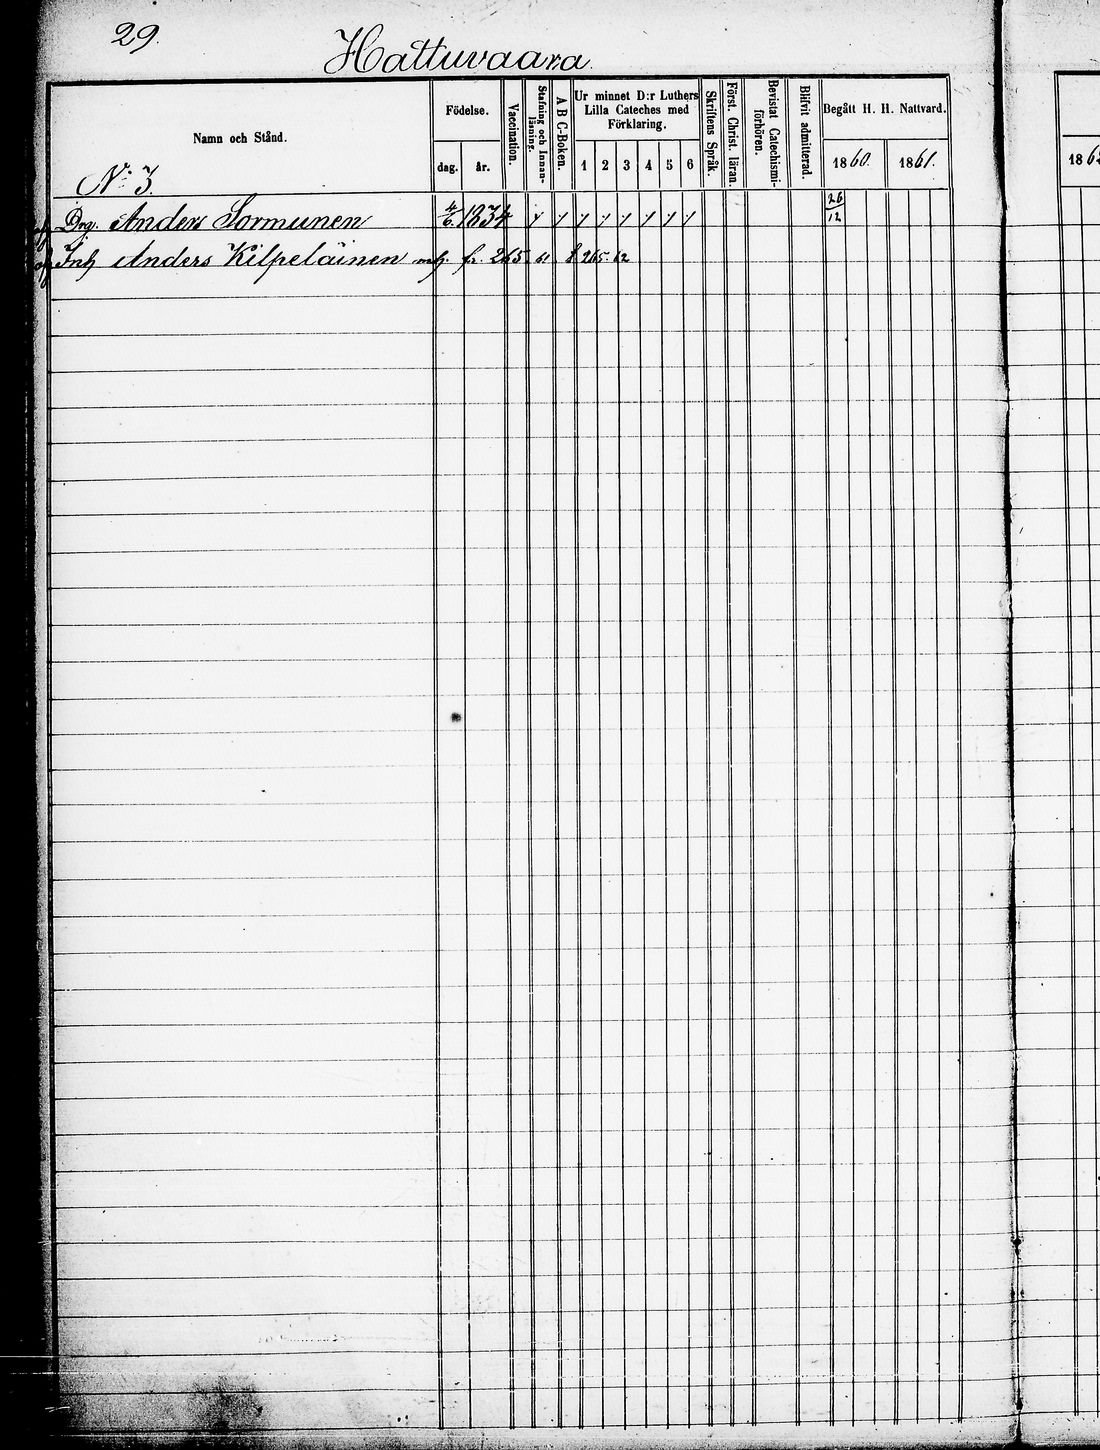 29.
Hattuvaara.
Namn och Stånd.
Födelse.
dag.
år.
Vaccination.
Stafning och Innan-
läsning.
A B C-Boken.
Ur minnet D:r Luthers
Lilla Cateches med
Förklaring.
1 2 3 4 5 6
Skriftens Språk.
Först. Christ. läran.
Bevistat Catechismi-
förhören.
Blifvit admitterad.
Begått H. H. Nattvard.
1860. 1861.
186
No 3.
Drg. Anders Sormunen 4/6 1834 26/12
Inh Anders Kilpeläinen fr. 265. 61 265 62